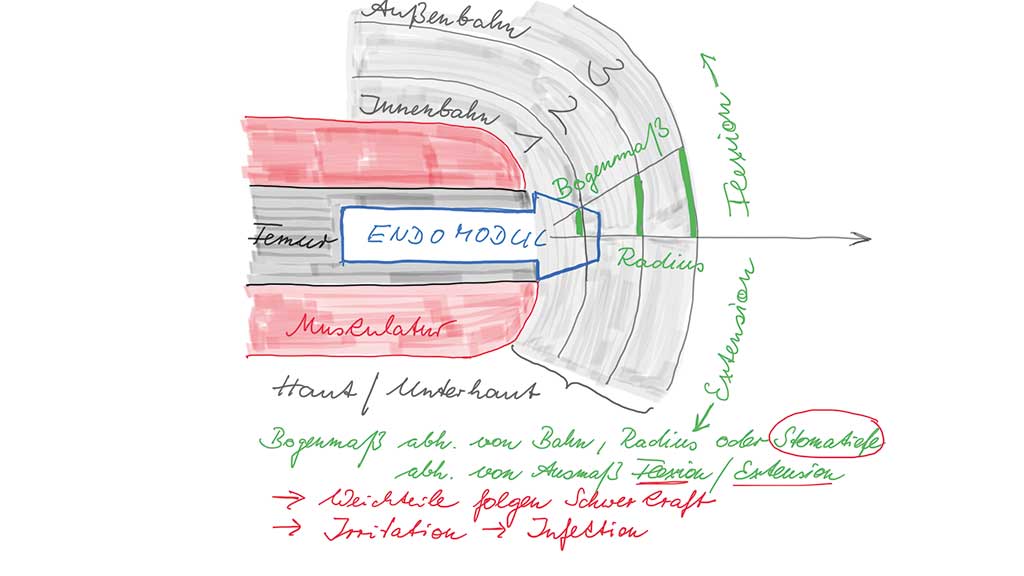 Außenbahn
3
Innenbahn
2
1
Bogenmaß
Flexion →
Femur
ENDOMODUL
Radius
Extension
Muskulatur
Haut / Unterhaut
Bogenmaß abh. von Bahn, Radius oder Stomatiefe
abh. von Ausmaß Flexion / Extension
→ Weichteile folgen Schwerkraft
→ Irritation → Infektion